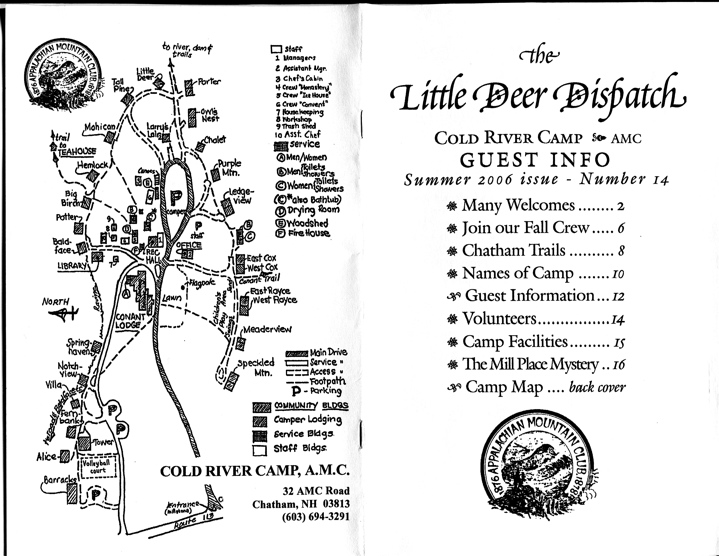 to river, dam &
trails
1876 APPALACHIAN MOUNTAIN CLUB 1876
Little
Deer
Porter
Tall
Pine
Owls
Nest
Mohican
Larry's
Loin
Chalet
trail
to
TEAHOUSE
Hemlock
Purple
Mtn.
Big
Bird
P
campers
Ledge-
view
Potter
P
staff
Bald-
face
REC
HALL
OFFICE
LIBRARY
East Cox
West Cox
Conant Trail
Flagpole
NORTH
CONANT
LODGE
Lawn
East Royce
West Royce
Meaderview
Spring-
haven
Speckled
Mtn.
Notch-
view
Villa
Fern-
bank
P
P
Tower
Alice
Volleyball
court
Barracks
P
Entrance
(millstone)
Route 113
Staff
1 Managers
2 Assistant Mgr.
3 Chef's Cabin
4 Crew "Monastery"
5 Crew "Ice House"
6 Crew "Convent"
7 Housekeeping
8 Workshop
9 Trash Shed
10 Asst. Chef
Service
A Men/Women Toilets
B Men/Showers
C Women/Toilets Showers
(C* also Bathtub)
D Drying Room
E Woodshed
F Fire House
Main Drive
Service "
Access "
Footpath
P - Parking
COMMUNITY BLDGS
Camper Lodging
Service Bldgs.
Staff Bldgs.
COLD RIVER CAMP, A.M.C.
32 AMC Road
Chatham, NH 03813
(603) 694-3291
the
Little Deer Dispatch
COLD RIVER CAMP AMC
GUEST INFO
Summer 2006 issue - Number 14
Many Welcomes ........ 2
Join our Fall Crew ..... 6
Chatham Trails .......... 8
Names of Camp ....... 10
Guest Information ... 12
Volunteers................. 14
Camp Facilities........... 15
The Mill Place Mystery .. 16
Camp Map .... back cover
1876 APPALACHIAN MOUNTAIN CLUB 1876